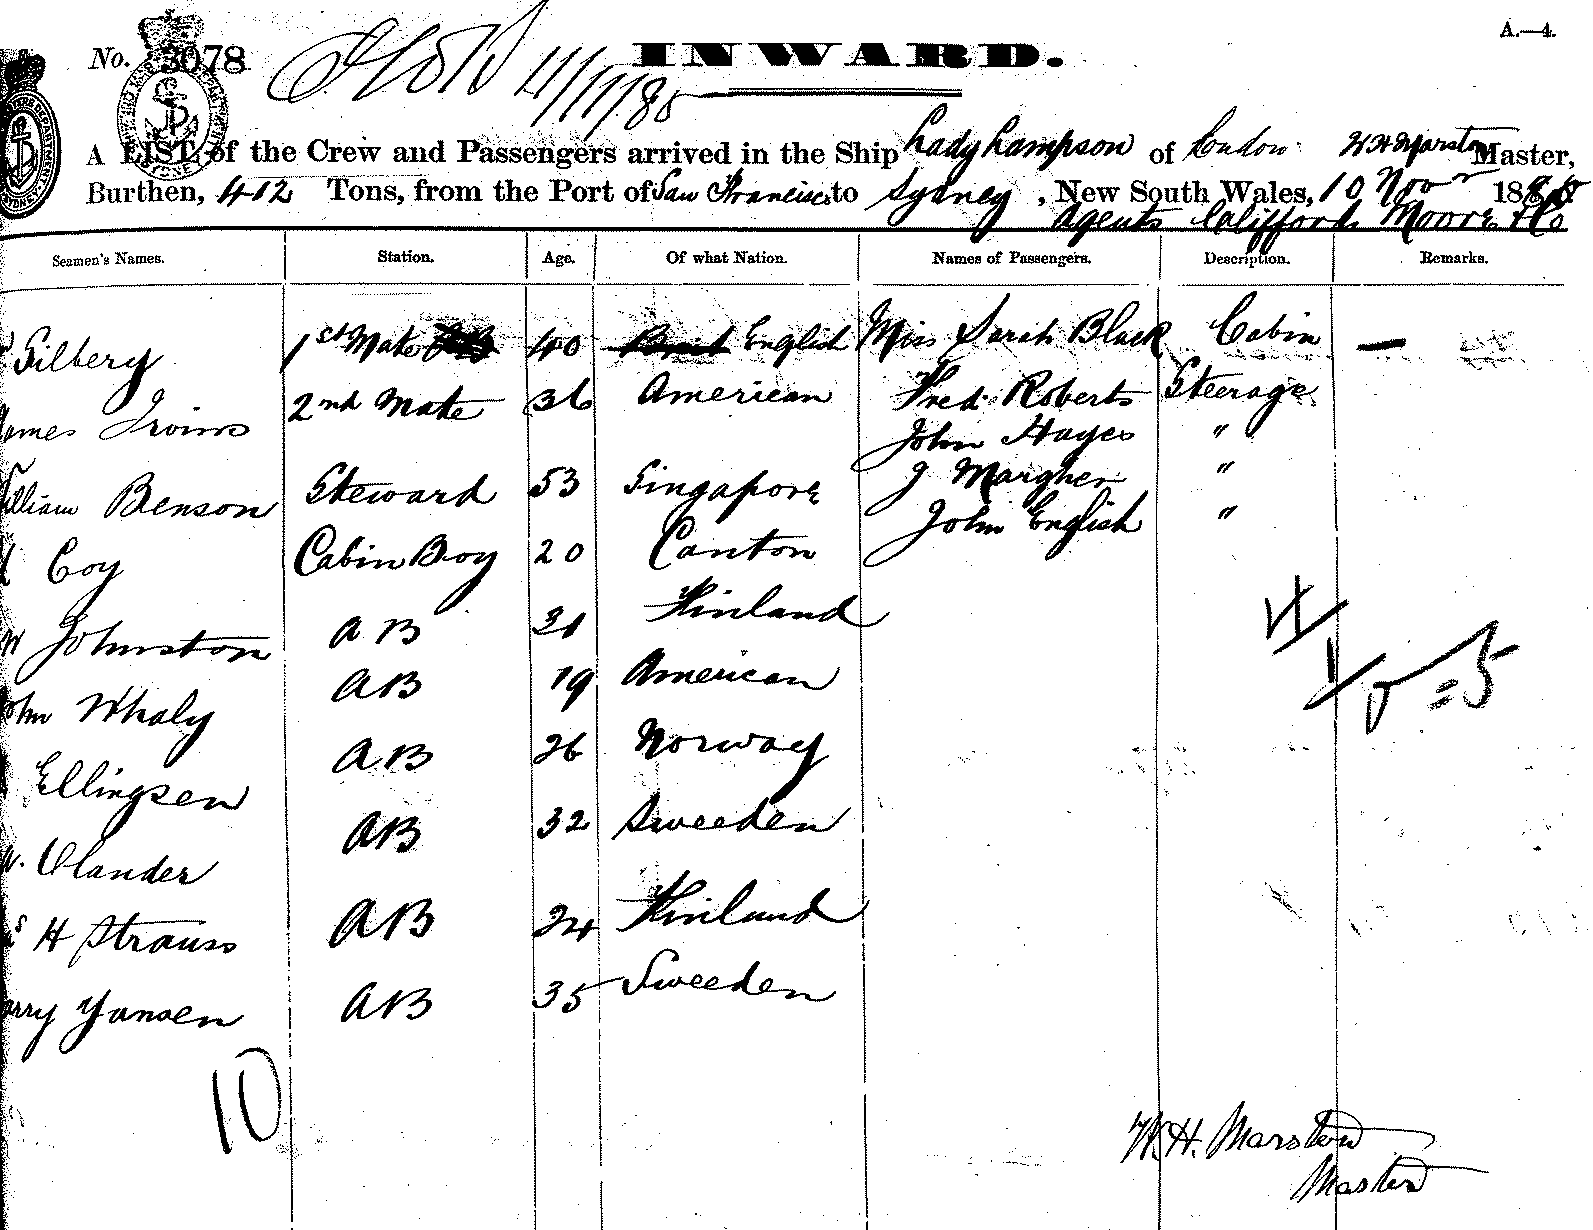 A.—4.
No. 3078
11/11/85
INWARD.
A LIST of the Crew and Passengers arrived in the Ship Lady Lampson of London W H Marston Master,
Burthen, 412 Tons, from the Port of San Francisco to Sydney, New South Wales, 10 Novr 1885
Agents Clifford Moore & Co
Seamen's Names. Station. Age. Of what Nation. Names of Passengers. Description. Remarks.
Gilbery 1st Mate 40 English Miss Sarah Black Cabin —
James Irvins 2nd Mate 36 American Fred. Roberts Steerage
John Hayes "
William Benson Steward 53 Singapore J Margher "
John English "
Coy Cabin Boy 20 Canton
Johnston AB 31 Finland
John Whaly AB 19 American
Ellingsen AB 26 Norway
Olander AB 32 Sweeden
H Strauss AB 24 Finland
Harry Yansen AB 35 Sweeden
= 5
10
W.H. Marston
Master